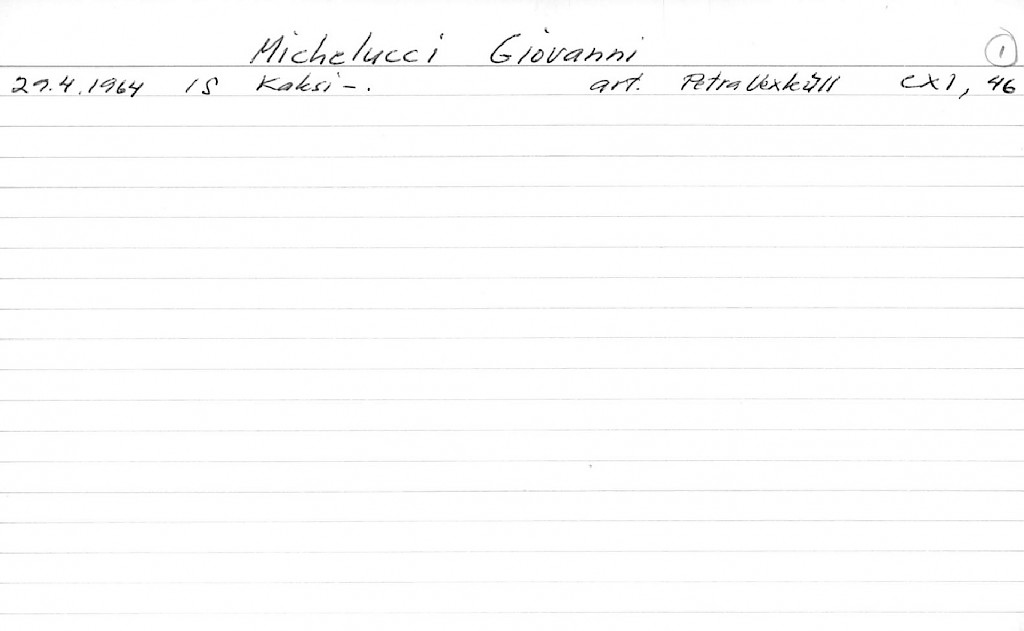 Michelucci Giovanni 1
29.4.1964 IS Kaksi-. art. Petra Uexküll CXI, 46